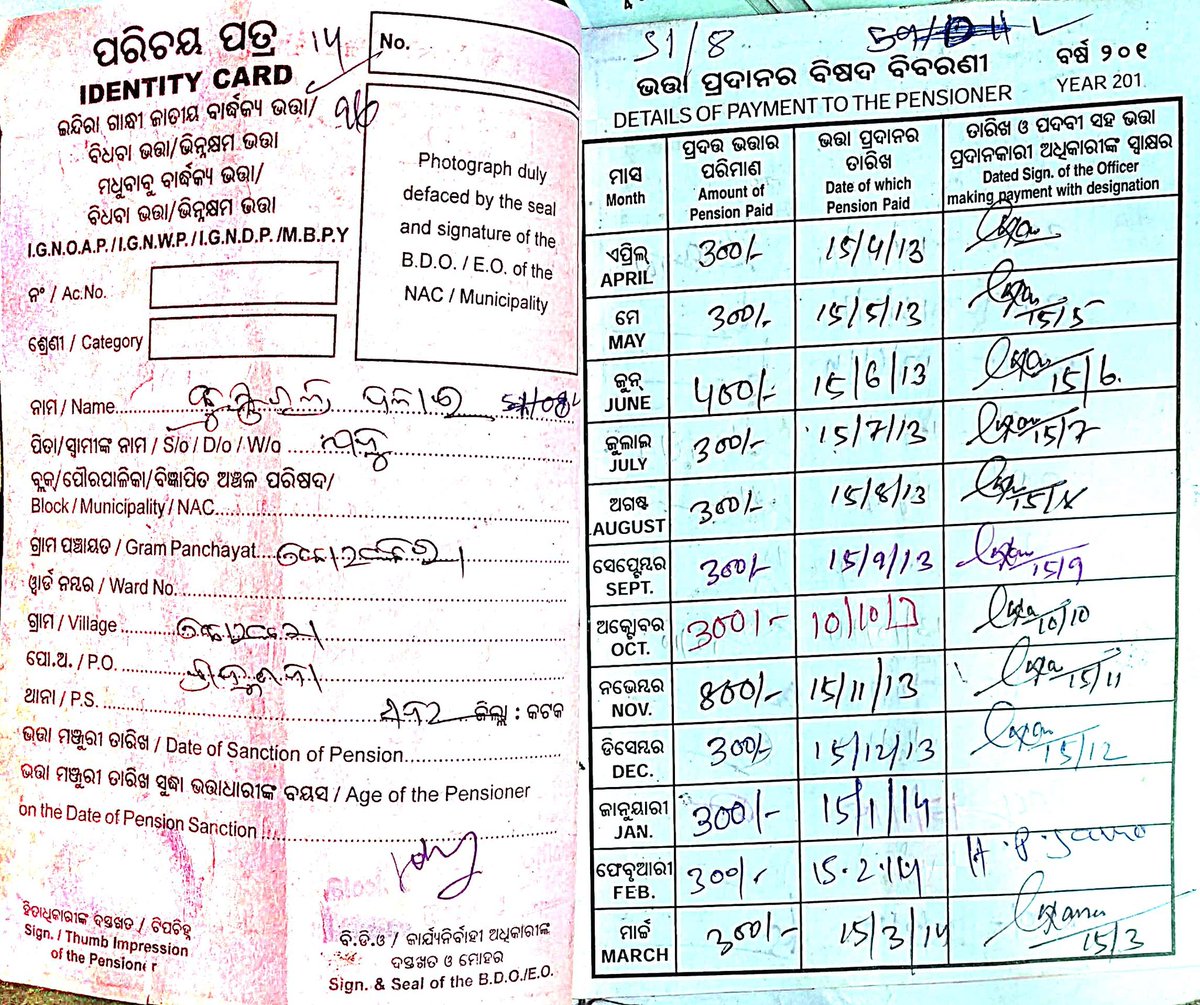 ପରିଚୟ ପତ୍ର 14
IDENTITY CARD
ଇନ୍ଦିରା ଗାନ୍ଧୀ ଜାତୀୟ ବାର୍ଦ୍ଧକ୍ୟ ଭତ୍ତା/
ବିଧବା ଭତ୍ତା/ଭିନ୍ନକ୍ଷମ ଭତ୍ତା
ମଧୁବାବୁ ବାର୍ଦ୍ଧକ୍ୟ ଭତ୍ତା/
ବିଧବା ଭତ୍ତା/ଭିନ୍ନକ୍ଷମ ଭତ୍ତା
I.G.N.O.A.P./I.G.N.W.P./I.G.N.D.P./M.B.P.Y
ନଂ / Ac.No.
ଶ୍ରେଣୀ / Category
No.
Photograph duly
defaced by the seal
and signature of the
B.D.O. / E.O. of the
NAC / Municipality
ନାମ / Name
ପିତା/ସ୍ୱାମୀଙ୍କ ନାମ / S/o / D/o / W/o
ବ୍ଲକ୍/ପୌରପାଳିକା/ବିଜ୍ଞାପିତ ଅଞ୍ଚଳ ପରିଷଦ/
Block / Municipality / NAC
ଗ୍ରାମ ପଞ୍ଚାୟତ / Gram Panchayat
ୱାର୍ଡ ନମ୍ବର / Ward No.
ଗ୍ରାମ / Village
ପୋ.ଅ. / P.O.
ଥାନା / P.S. ଜିଲ୍ଲା : କଟକ
ଭତ୍ତା ମଞ୍ଜୁରୀ ତାରିଖ / Date of Sanction of Pension
ଭତ୍ତା ମଞ୍ଜୁରୀ ତାରିଖ ସୁଦ୍ଧା ଭତ୍ତାଧାରୀଙ୍କ ବୟସ / Age of the Pensioner
on the Date of Pension Sanction
ହିତାଧିକାରୀଙ୍କ ଦସ୍ତଖତ / ଟିପଚିହ୍ନ
Sign. / Thumb Impression
of the Pensioner
ବି.ଡି.ଓ / କାର୍ଯ୍ୟନିର୍ବାହୀ ଅଧିକାରୀଙ୍କ
ଦସ୍ତଖତ ଓ ମୋହର
Sign. & Seal of the B.D.O./E.O.
51/8
ଭତ୍ତା ପ୍ରଦାନର ବିଷଦ ବିବରଣୀ ବର୍ଷ ୨୦୧
DETAILS OF PAYMENT TO THE PENSIONER YEAR 201
ମାସ Month ପ୍ରଦତ୍ତ ଭତ୍ତାର ପରିମାଣ Amount of Pension Paid ଭତ୍ତା ପ୍ରଦାନର ତାରିଖ Date of which Pension Paid ତାରିଖ ଓ ପଦବୀ ସହ ଭତ୍ତା ପ୍ରଦାନକାରୀ ଅଧିକାରୀଙ୍କ ସ୍ୱାକ୍ଷର Dated Sign. of the Officer making payment with designation
ଏପ୍ରିଲ୍ APRIL 300/- 15/4/13
ମେ MAY 300/- 15/5/13 15/5
ଜୁନ୍ JUNE 400/- 15/6/13 15/6.
ଜୁଲାଇ JULY 300/- 15/7/13 15/7
ଅଗଷ୍ଟ AUGUST 300/- 15/8/13
ସେପ୍ଟେମ୍ବର SEPT. 300/- 15/9/13 15/9
ଅକ୍ଟୋବର OCT. 300/- 10/10/ 10/10
ନଭେମ୍ବର NOV. 800/- 15/11/13 15/11
ଡିସେମ୍ବର DEC. 300/- 15/12/13 15/12
ଜାନୁୟାରୀ JAN. 300/- 15/1/14
ଫେବୃଆରୀ FEB. 300/- 15.2.14
ମାର୍ଚ୍ଚ MARCH 300/- 15/3/14 15/3